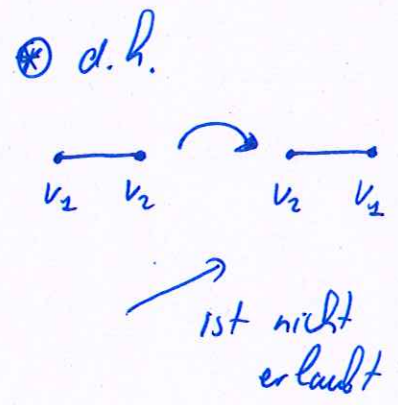 ⊛ d.h.
v₁ v₂ v₂ v₁
ist nicht
erlaubt